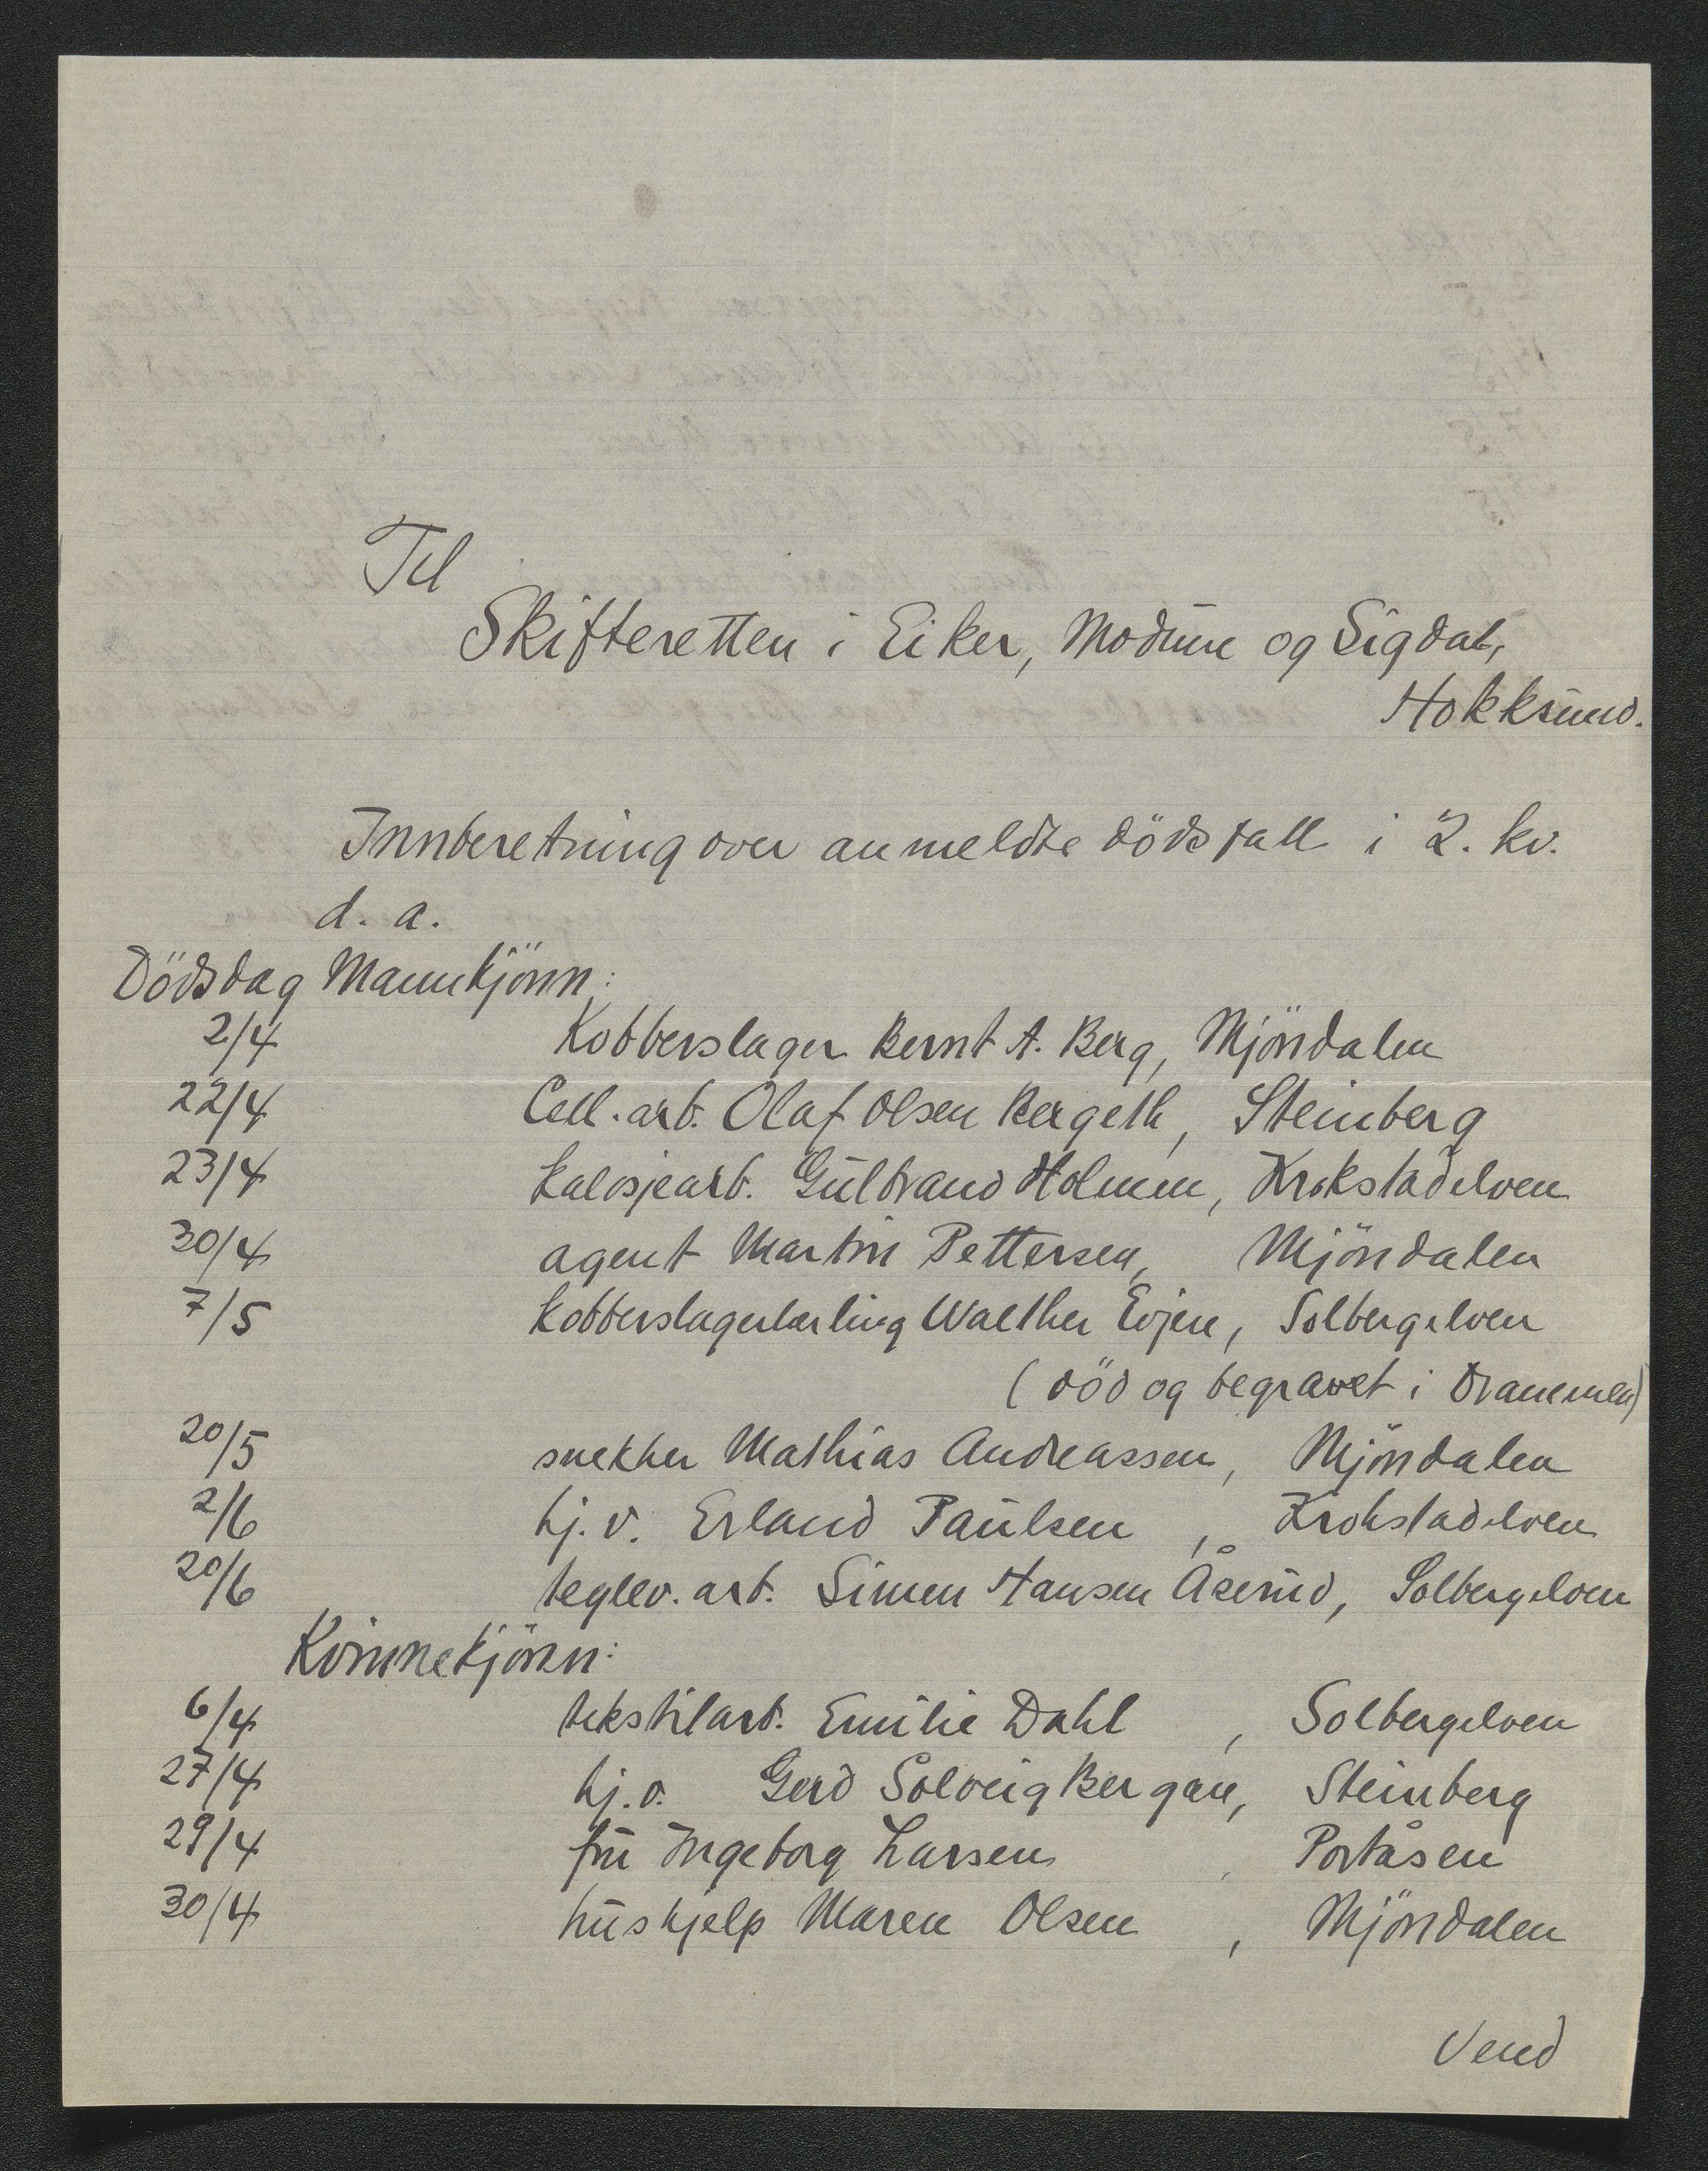 Til
Skifteretten i Eiker, Modum og Sigdal,
Hokksund.
Innberetning over anmeldte dödsfall i 2. kv.
d. a.
Dödsdag Mannkjönn:
2/4 Kobberslager Bernt A. Berg, Mjöndalen
22/4 Cell. arb. Olaf Olsen Bergeth, Steinberg
23/4 kalosjearb. Gulbrand Holmen, Krokstadelven
30/4 agent Martin Pettersen, Mjöndalen
7/5 kobberslagerlærling Walther Evjen, Solbergelven
(död og begravet i Drammen)
20/5 snekker Mathias Andreassen, Mjöndalen
2/6 hj. v. Erland Paulsen, Krokstadelven
20/6 teglv. arb. Simen Hansen Åserud, Solbergelven
Kvinnekjönn:
6/4 tekstilarb. Emilie Dahl, Solbergelven
27/4 hj. v. Gerd Solveig Bergan, Steinberg
29/4 fru Ingeborg Larsen, Portåsen
30/4 hushjelp Maren Olsen, Mjöndalen
Vend